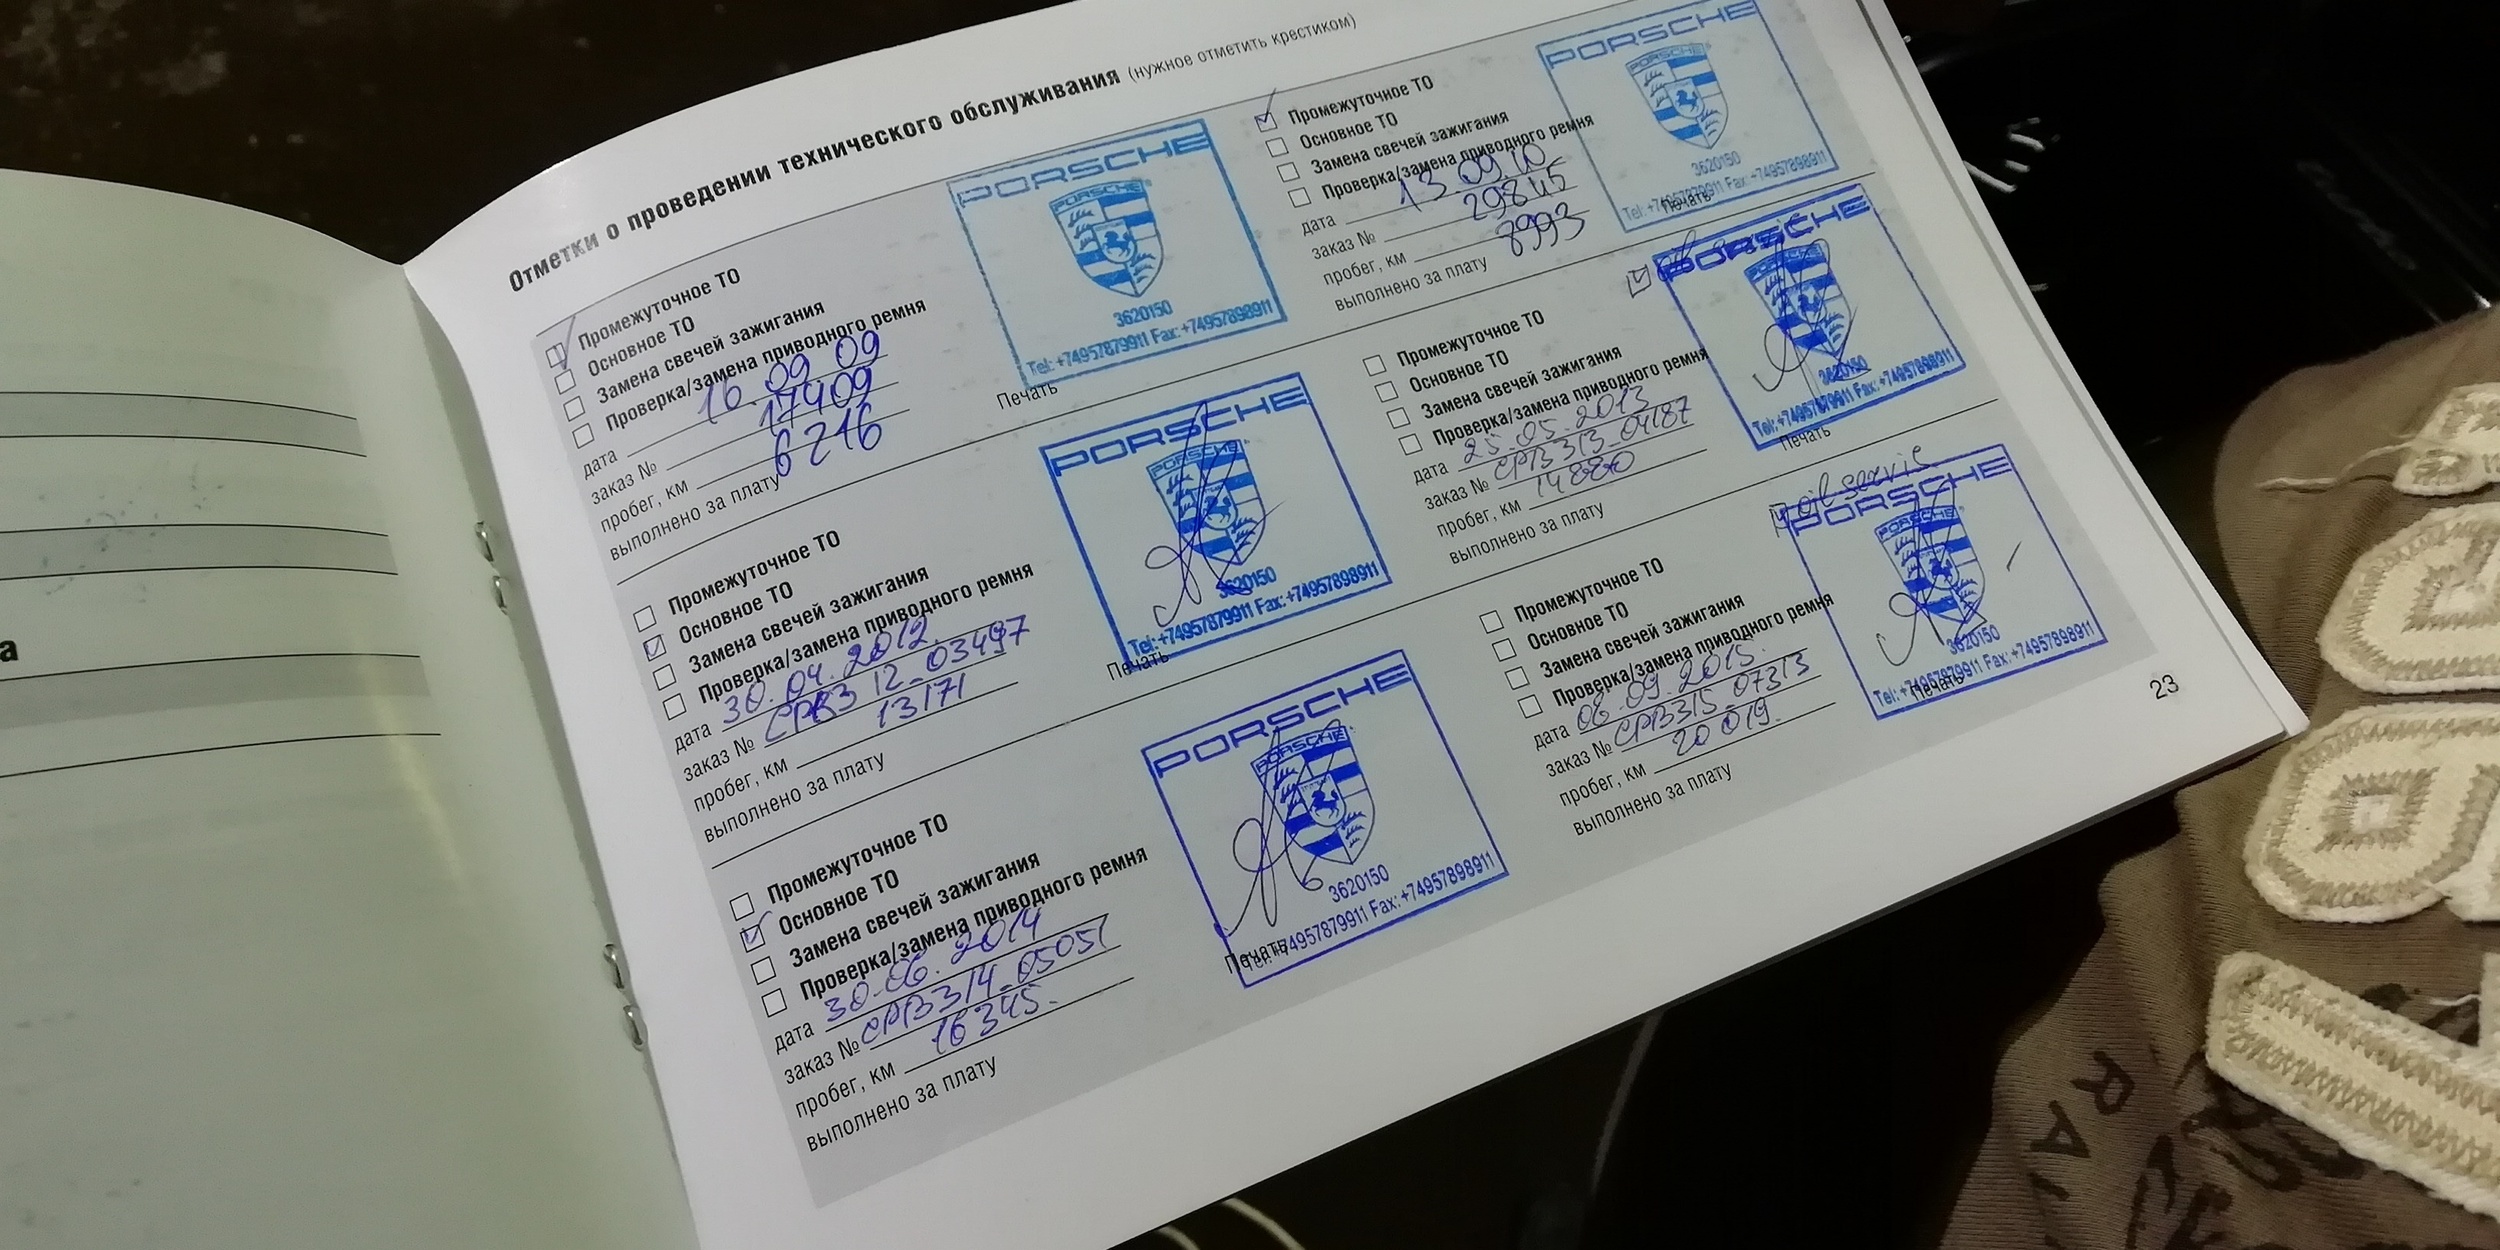 Отметки о проведении технического обслуживания (нужное отметить крестиком)
Промежуточное ТО
Основное ТО
Замена свечей зажигания
Проверка/замена приводного ремня
дата 16.09.09
заказ № 17409
пробег, км 6216
выполнено за плату
PORSCHE
PORSCHE
3620150
Tel: +74957879911 Fax: +74957898911
Печать
Промежуточное ТО
Основное ТО
Замена свечей зажигания
Проверка/замена приводного ремня
дата 13.09.10
заказ № 29845
пробег, км 8993
выполнено за плату
PORSCHE
PORSCHE
3620150
Tel: +74957879911 Fax: +74957898911
Печать
Промежуточное ТО
Основное ТО
Замена свечей зажигания
Проверка/замена приводного ремня
дата 30.04.2012.
заказ № СРВЗ 12-03497
пробег, км 13171
выполнено за плату
PORSCHE
PORSCHE
3620150
Tel: +74957879911 Fax: +74957898911
Печать
Промежуточное ТО
Основное ТО
Замена свечей зажигания
Проверка/замена приводного ремня
дата 25.05.2013
заказ № СРВЗ13-04187
пробег, км 14880
выполнено за плату
PORSCHE
PORSCHE
3620150
Tel: +74957879911 Fax: +74957898911
Печать
Промежуточное ТО
Основное ТО
Замена свечей зажигания
Проверка/замена приводного ремня
дата 30.06.2014
заказ № СРВЗ14-05051
пробег, км 16345.
выполнено за плату
PORSCHE
PORSCHE
3620150
Tel: +74957879911 Fax: +74957898911
Печать
oil servis
Промежуточное ТО
Основное ТО
Замена свечей зажигания
Проверка/замена приводного ремня
дата 06.09.2015.
заказ № СРВЗ15-07313
пробег, км 20019.
выполнено за плату
PORSCHE
PORSCHE
3620150
Tel: +74957879911 Fax: +74957898911
Печать
23
а